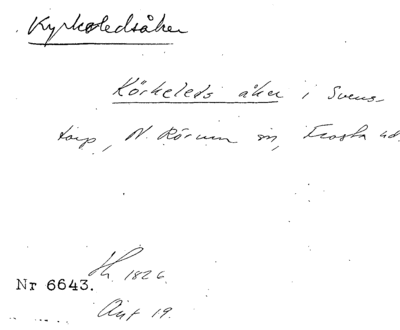 Kyrkoledsåker
Körkeleds åker i Svens-
torp, N. Rörum sn, Frosta hd.
Nr 6643.
1826.
19.